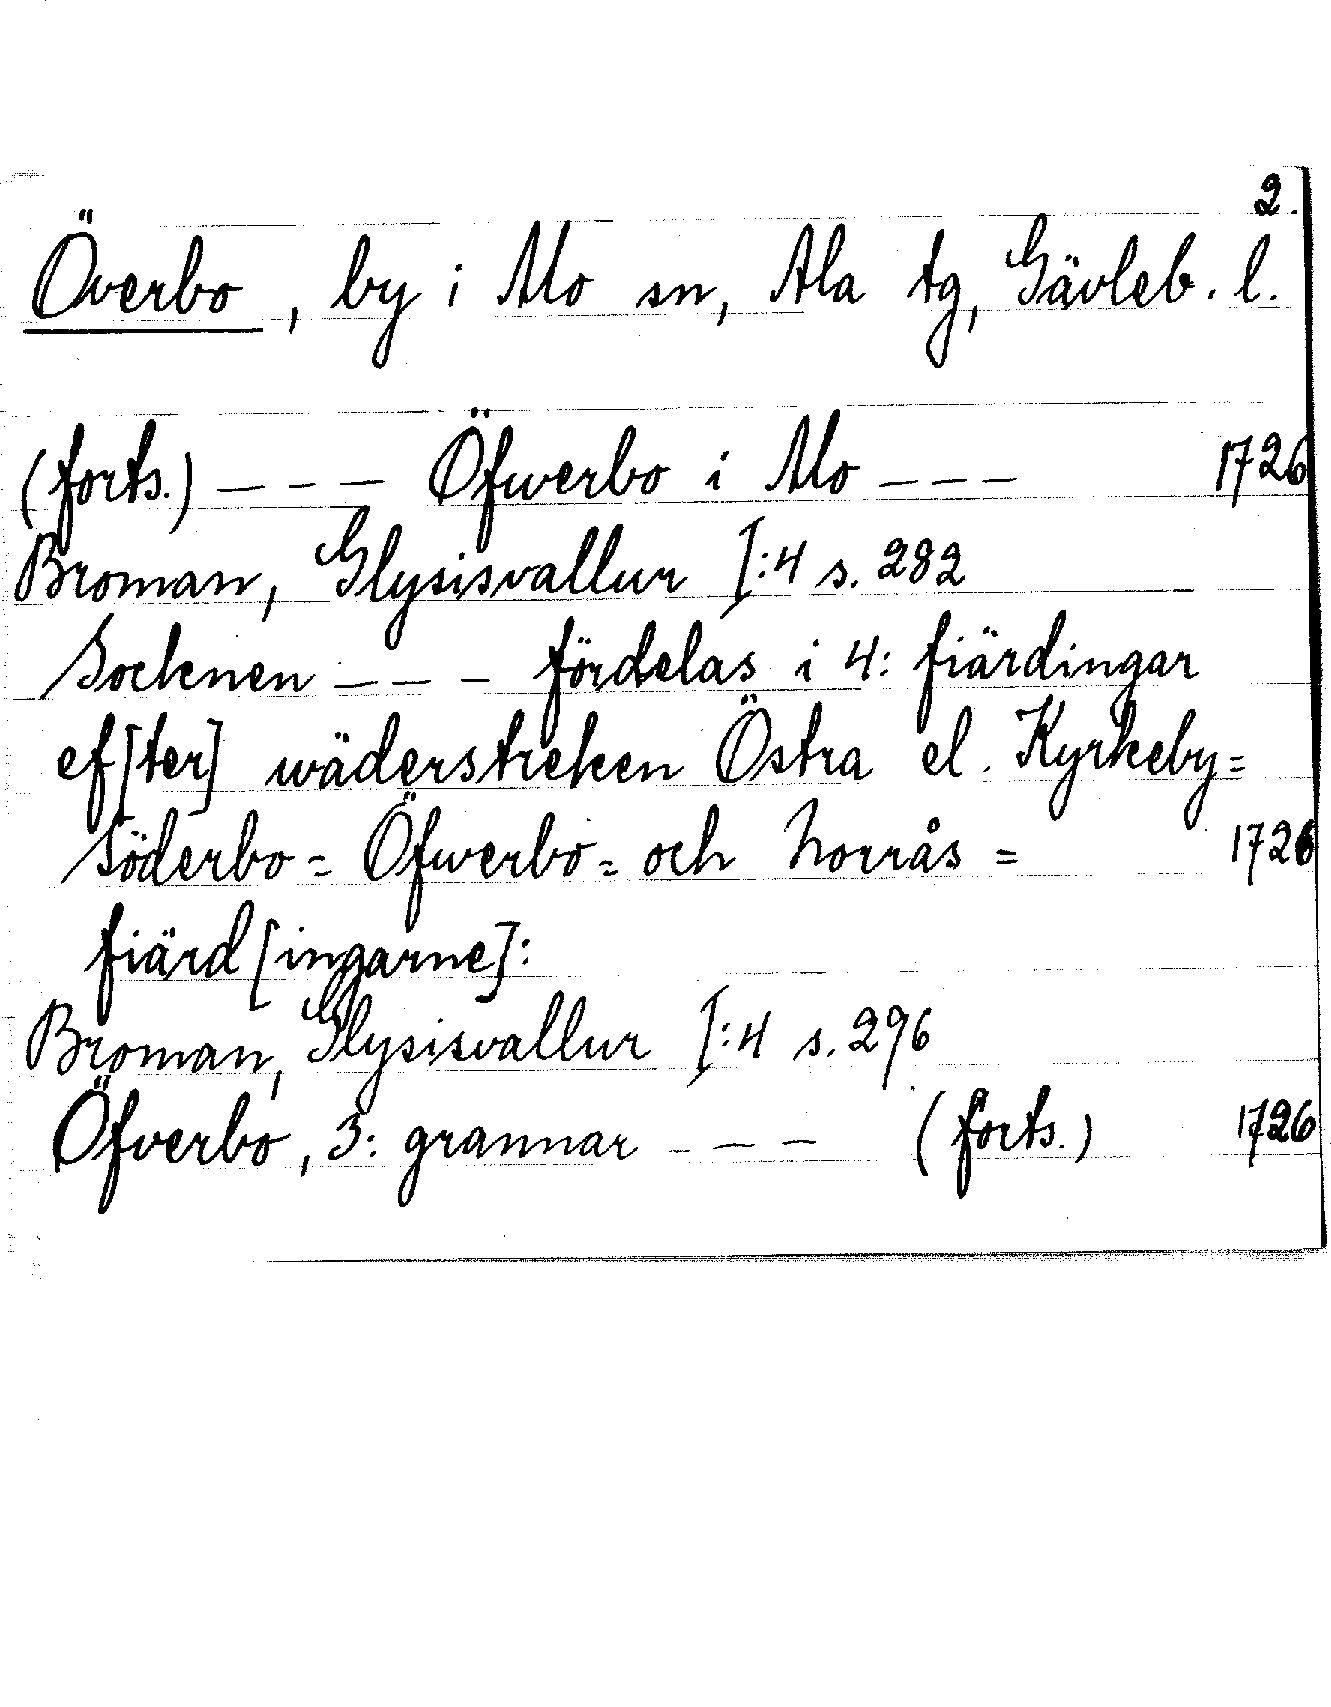 2.
Överbo, by i Mo sn, Ala tg, Gävleb. l.
(forts.) – – – Öfwerbo i Mo – – – 1726
Broman, Glysisvallur I:4 s. 282
Socknen – – – fördelas i 4: fiärdingar
ef[ter] wäderstreken Östra el. Kyrkeby=
Söderbo= Öfwerbo= och Norrås= 1726
fiärd[ingarne]:
Broman, Glysisvallur I:4 s. 296
Öfverbo, 3: grannar – – – (forts.) 1726